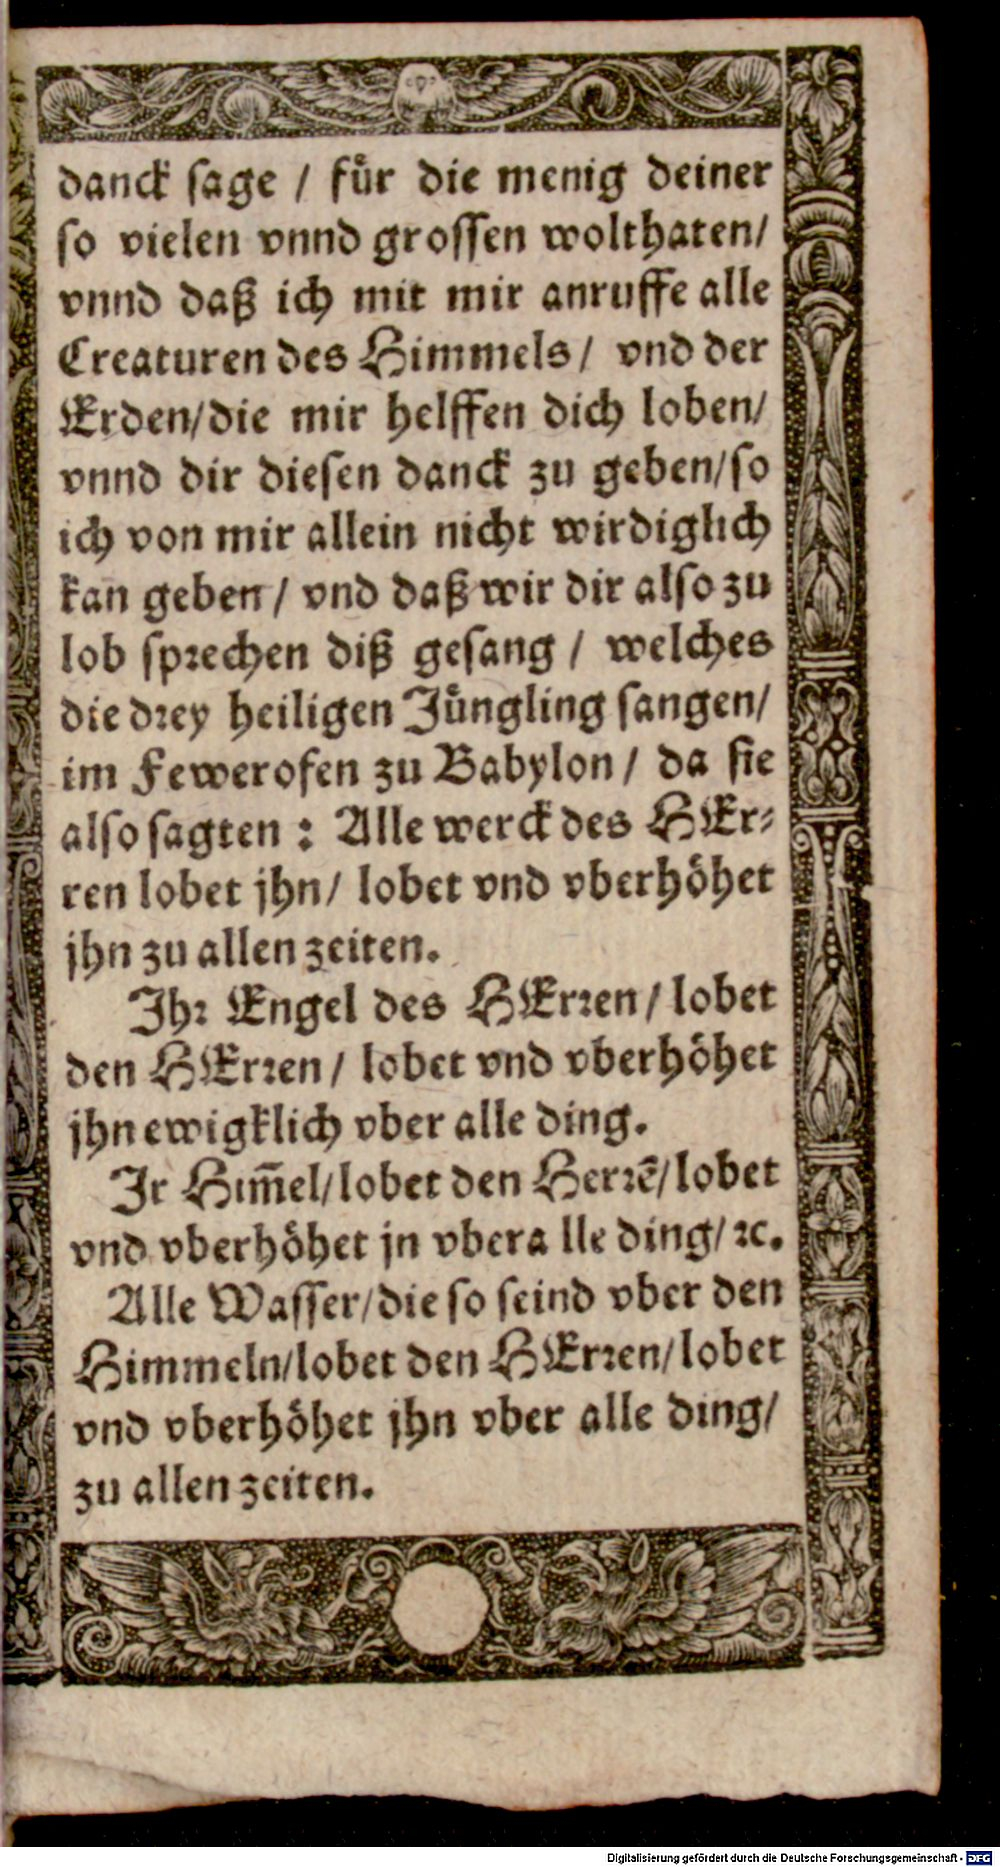 danck sage / fuͤr die menig deiner
so vielen vnnd grossen wolthaten/
vnnd daß ich mit mir anruffe alle
Creaturen des Himmels / vnd der
Erden/die mir helffen dich loben/
vnnd dir diesen danck zu geben/so
ich von mir allein nicht wirdiglich
kan geben / vnd daß wir dir also zu
lob sprechen diß gesang / welches
die drey heiligen Juͤngling sangen/
im Fewerofen zu Babylon / da sie
also sagten : Alle werck des HEr-
ren lobet jhn/ lobet vnd vberhoͤhet
jhn zu allen zeiten.
Ihr Engel des HErren / lobet
den HErren / lobet vnd vberhoͤhet
jhn ewigklich vber alle ding.
Ir Him̄el/lobet den Herrē/lobet
vnd vberhoͤhet jn vbera lle ding/ ꝛc.
Alle Wasser/die so seind vber den
Himmeln/lobet den HErren/lobet
vnd vberhoͤhet jhn vber alle ding/
zu allen zeiten.
Digitalisierung gefördert durch die Deutsche Forschungsgemeinschaft - DFG